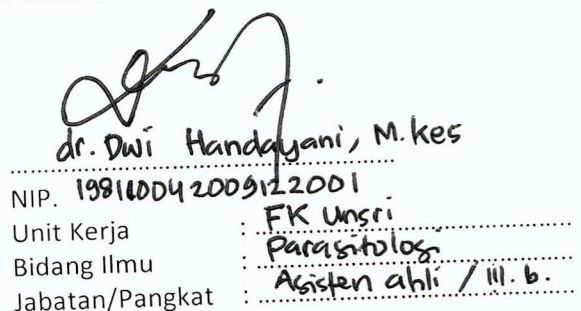 dr. Dwi Handayani, M.kes
NIP. 198110042009122001
Unit Kerja : FK Unsri
Bidang Ilmu : Parasitologi
Jabatan/Pangkat : Asisten ahli / III. b.